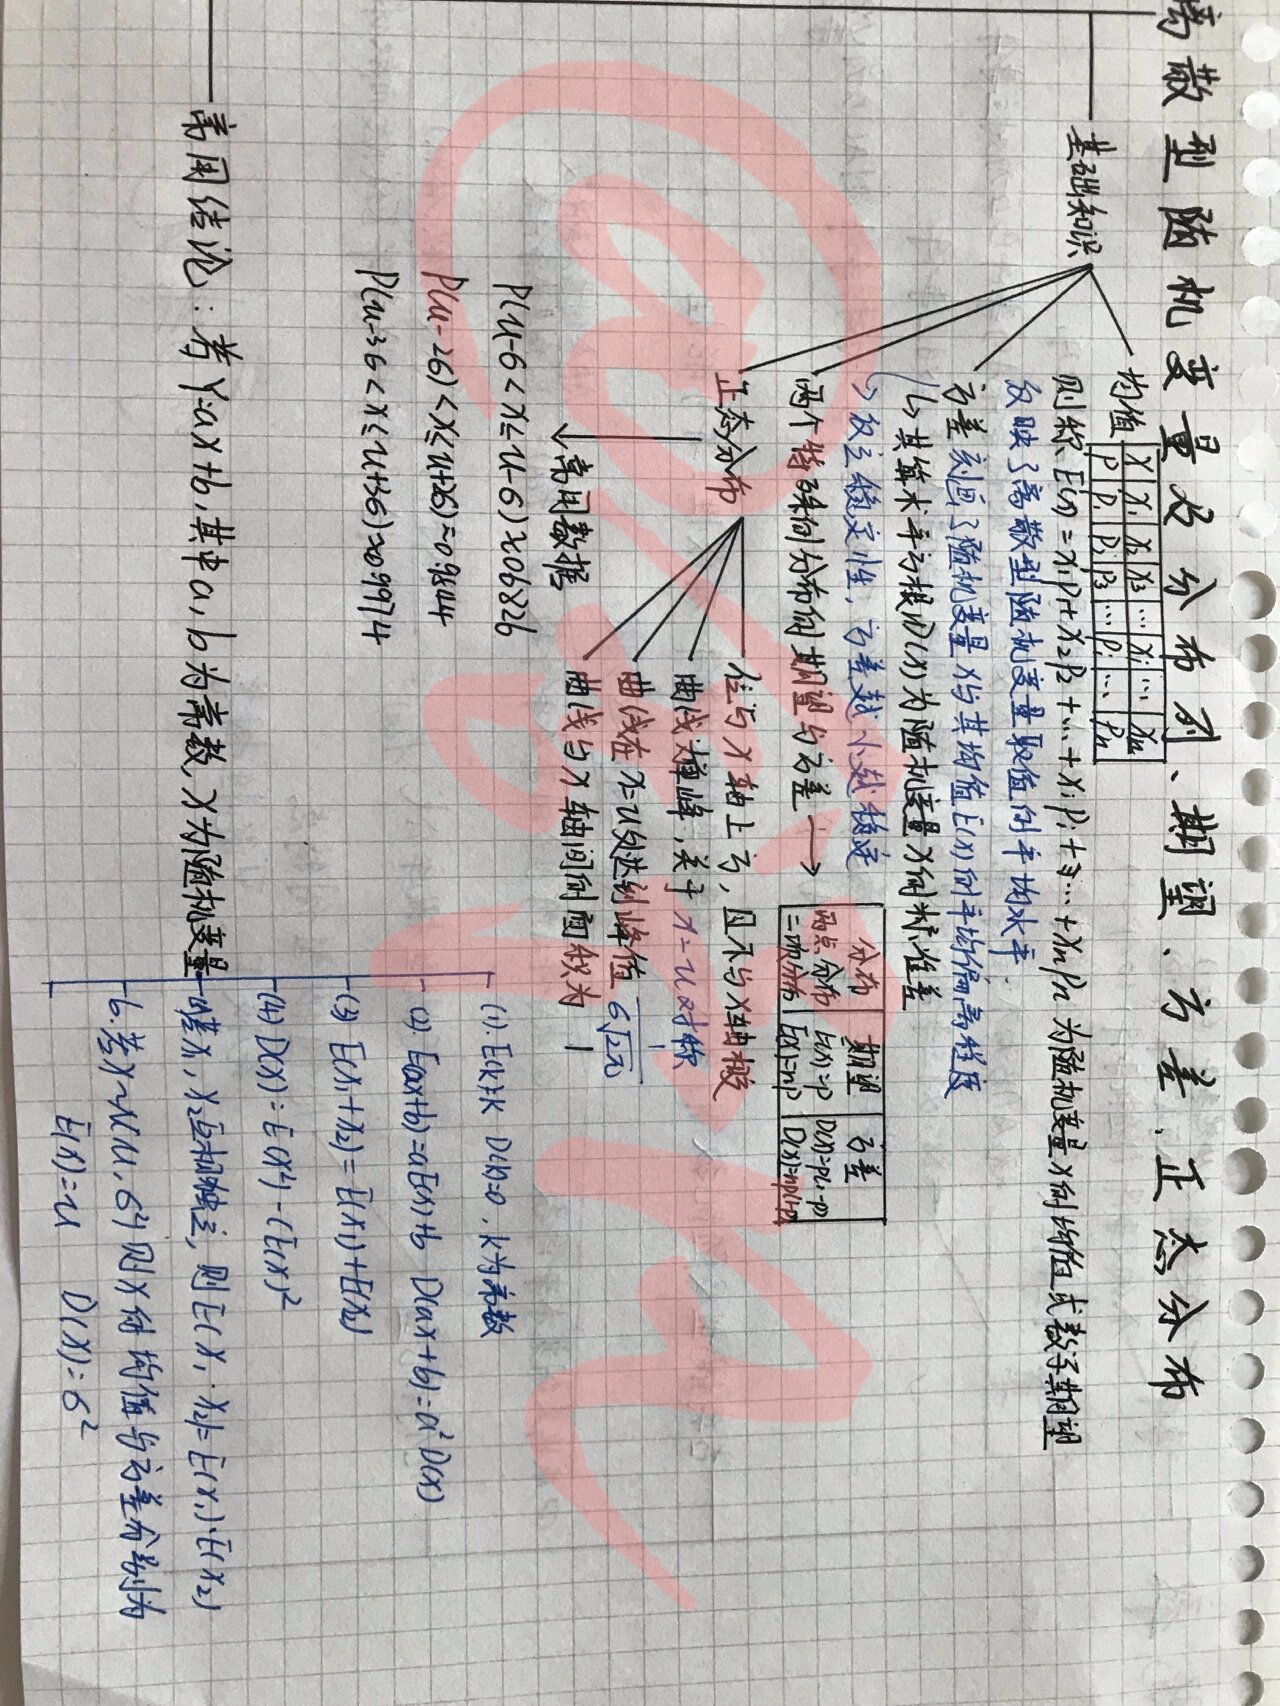 离散型随机变量及分布列、期望、方差、正态分布
基础知识
均值
X x₁ x₂ x₃ … xi … xn
P P₁ P₂ P₃ … Pi … Pn
则称、E(x)=x₁P₁+x₂P₂+…+xiPi+…+xnPn为随机变量X的均值或数学期望
反映了离散型随机变量取值的平均水平.
方差刻画了随机变量X与其均值E(x)的平均偏离程度
↳其算术平方根√D(x)为随机变量X的标准差
>反应稳定性,方差越小越稳定
两个特殊的分布的期望与方差→
分布 期望 方差
两点分布 E(x)=p D(x)=p(1-p)
二项分布 E(x)=np D(x)=np(1-p)
正态分布
位与X轴上方,且不与X轴
曲线是单峰,关于x=u对称
曲线在x=u处达到峰值 1/6√2π
曲线与X轴间的面积为1
常用数据
P(u-6<x≤u-6)≈0.6826
P(u-26)<x≤u+26)≈0.9544
P(u-36<x≤u+36)≈0.9974
常用结论:若Y=ax+b,其中a,b为常数,X为随机变量
(1).E(k)=k D(k)=0.k为常数
(2).E(ax+b)=aE(x)+b D(ax+b)=a²D(x)
(3) E(x₁+x₂)=E(x₁)+E(x₂)
(4) D(x)=E(x²)-(E(x)²
若x₁,x₂互相独立,则E(x₁·x₂)=E(x₁)·E(x₂)
6.若x~N(u,6²)则X的均值与方差分别为
E(x)=u D(X)=6²